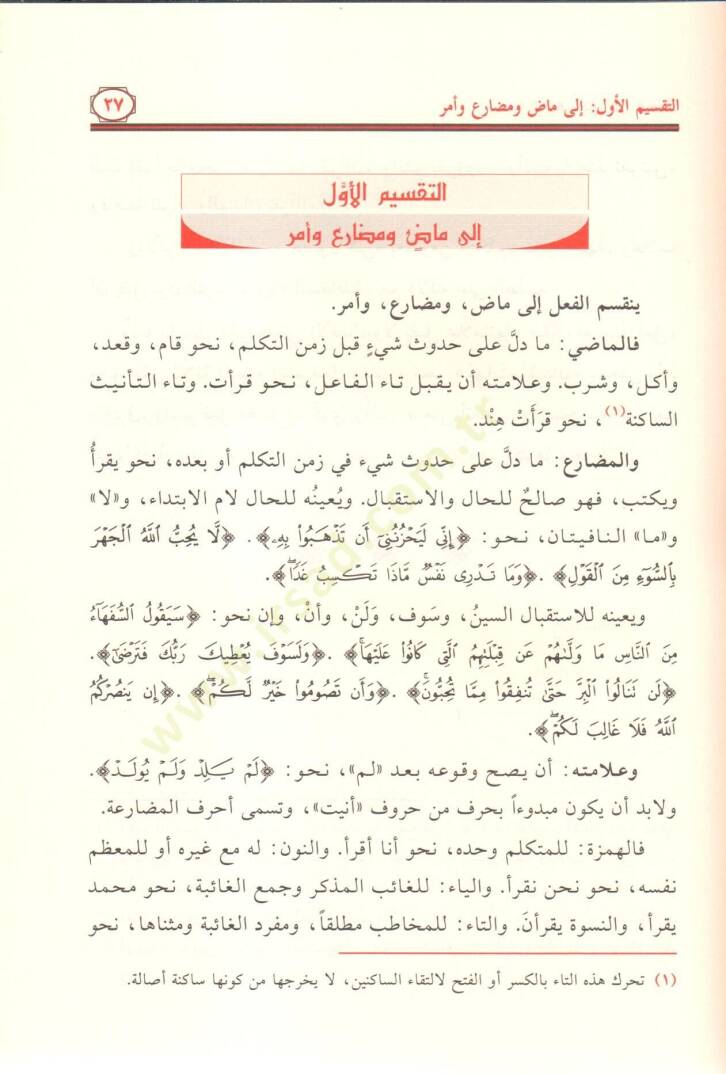 التقسيم الأول: إلى ماض ومضارع وأمر
٢٧
التقسيم الأوَّل
إلى ماضٍ ومضارع وأمر
ينقسم الفعل إلى ماض، ومضارع، وأمر.
فالماضي: ما دلَّ على حدوث شيءٍ قبل زمن التكلم، نحو قام، وقعد،
وأكل، وشرب. وعلامته أن يقبل تاء الفاعل، نحو قرأت. وتاء التأنيث
الساكنة(١)، نحو قرَأَتْ هِنْد.
والمضارع: ما دلَّ على حدوث شيء في زمن التكلم أو بعده، نحو يقرأُ
ويكتب، فهو صالحٌ للحال والاستقبال. ويُعينُه للحال لام الابتداء، و«لا»
و«ما» النافيتان، نحو: ﴿إِنِّي لَيَحْزُنُنِيٓ أَن تَذْهَبُوا۟ بِهِۦ﴾. ﴿لَّا يُحِبُّ ٱللَّهُ ٱلْجَهْرَ
بِٱلسُّوٓءِ مِنَ ٱلْقَوْلِ﴾. ﴿وَمَا تَدْرِى نَفْسٌ مَّاذَا تَكْسِبُ غَدًاۖ﴾.
ويعينه للاستقبال السينُ، وسَوف، وَلَنْ، وأنْ، وإن نحو: ﴿سَيَقُولُ ٱلسُّفَهَآءُ
مِنَ ٱلنَّاسِ مَا وَلَّىٰهُمْ عَن قِبْلَتِهِمُ ٱلَّتِى كَانُوا۟ عَلَيْهَاۚ﴾. ﴿وَلَسَوْفَ يُعْطِيكَ رَبُّكَ فَتَرْضَىٰٓ﴾.
﴿لَن تَنَالُوا۟ ٱلْبِرَّ حَتَّىٰ تُنفِقُوا۟ مِمَّا تُحِبُّونَۚ﴾. ﴿وَأَن تَصُومُوا۟ خَيْرٌ لَّكُمْۖ﴾. ﴿إِن يَنصُرْكُمُ
ٱللَّهُ فَلَا غَالِبَ لَكُمْۖ﴾.
وعلامته: أن يصح وقوعه بعد «لم»، نحو: ﴿لَمْ يَلِدْ وَلَمْ يُولَدْ﴾.
ولابد أن يكون مبدوءاً بحرف من حروف «أنيت»، وتسمى أحرف المضارعة.
فالهمزة: للمتكلم وحده، نحو أنا أقرأ. والنون: له مع غيره أو للمعظم
نفسه، نحو نحن نقرأ. والياء: للغائب المذكر وجمع الغائبة، نحو محمد
يقرأ، والنسوة يقرأنَ. والتاء: للمخاطب مطلقاً، ومفرد الغائبة ومثناها، نحو
(١) تحرك هذه التاء بالكسر أو الفتح لالتقاء الساكنين، لا يخرجها من كونها ساكنة أصالة.